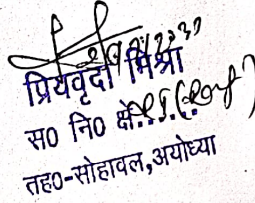 प्रियवृदा मिश्रा
स० नि० क्षे.....
तह०-सोहावल,अयोध्या